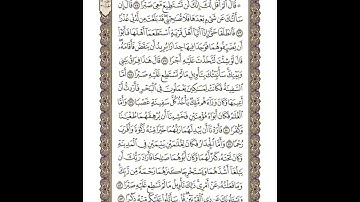 ۞ قَالَ أَلَمْ أَقُل لَّكَ إِنَّكَ لَن تَسْتَطِيعَ مَعِيَ صَبْرًا ٧٥ قَالَ إِن
سَأَلْتُكَ عَن شَيْءٍ بَعْدَهَا فَلَا تُصَاحِبْنِي قَدْ بَلَغْتَ مِن لَّدُنِّي عُذْرًا
٧٦ فَانطَلَقَا حَتَّىٰ إِذَا أَتَيَا أَهْلَ قَرْيَةٍ اسْتَطْعَمَا أَهْلَهَا فَأَبَوْا
أَن يُضَيِّفُوهُمَا فَوَجَدَا فِيهَا جِدَارًا يُرِيدُ أَن يَنقَضَّ فَأَقَامَهُ
قَالَ لَوْ شِئْتَ لَتَّخَذْتَ عَلَيْهِ أَجْرًا ٧٧ قَالَ هَٰذَا فِرَاقُ بَيْنِي
وَبَيْنِكَ سَأُنَبِّئُكَ بِتَأْوِيلِ مَا لَمْ تَسْتَطِع عَّلَيْهِ صَبْرًا ٧٨ أَمَّا
السَّفِينَةُ فَكَانَتْ لِمَسَاكِينَ يَعْمَلُونَ فِي الْبَحْرِ فَأَرَدتُّ أَنْ
أَعِيبَهَا وَكَانَ وَرَاءَهُم مَّلِكٌ يَأْخُذُ كُلَّ سَفِينَةٍ غَصْبًا ٧٩ وَأَمَّا
الْغُلَامُ فَكَانَ أَبَوَاهُ مُؤْمِنَيْنِ فَخَشِينَا أَن يُرْهِقَهُمَا طُغْيَانًا
وَكُفْرًا ٨٠ فَأَرَدْنَا أَن يُبْدِلَهُمَا رَبُّهُمَا خَيْرًا مِّنْهُ زَكَاةً وَأَقْرَبَ
رُحْمًا ٨١ وَأَمَّا الْجِدَارُ فَكَانَ لِغُلَامَيْنِ يَتِيمَيْنِ فِي الْمَدِينَةِ
وَكَانَ تَحْتَهُ كَنزٌ لَّهُمَا وَكَانَ أَبُوهُمَا صَالِحًا فَأَرَادَ رَبُّكَ أَن
يَبْلُغَا أَشُدَّهُمَا وَيَسْتَخْرِجَا كَنزَهُمَا رَحْمَةً مِّن رَّبِّكَ
وَمَا فَعَلْتُهُ عَنْ أَمْرِي ذَٰلِكَ تَأْوِيلُ مَا لَمْ تَسْطِع عَّلَيْهِ صَبْرًا ٨٢
وَيَسْأَلُونَكَ عَن ذِي الْقَرْنَيْنِ قُلْ سَأَتْلُو عَلَيْكُم مِّنْهُ ذِكْرًا ٨٣